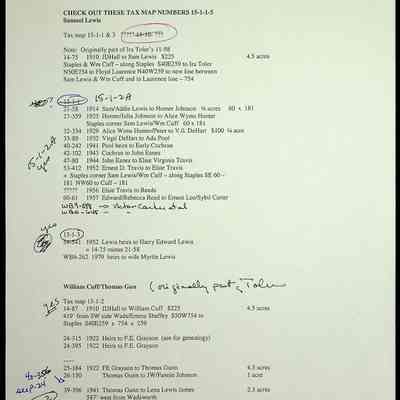 CHECK OUT THESE TAX MAP NUMBERS 15-1-1-5
Samuel Lewis
Tax map 15-1-1 & 3
Note: Originally part of Ira Toler's 11-98
14-75 1910 JJHall to Sam Lewis $225 4.5 acres
Staples & Wm Cuff – along Staples S40E259 to Ira Toler
N50E754 to Floyd Laurence N40W259 to new line between
Sam Lewis & Wm Cuff and to Laurence line – 754
15-1-1 15-1-2A
21-58 1914 Sam/Addie Lewis to Homer Johnson ¼ acre 60 x 181
27-359 1925 Homer/Julia Johnson to Alice Wynn Homer
Staples corner Sam Lewis/Wm Cuff 60 x 181
32-334 1929 Alice Wynn Homer/Peter to V.G. DeHart $100 ¼ acre
35-80 1932 Virgil DeHart to Ada Pool
40-242 1941 Pool heirs to Early Cochran
42-102 1943 Cochran to John Eanes
47-80 1944 John Eanes to Elsie Virginia Travis
53-412 1952 Ernest D. Travis to Elsie Travis
+ Staples corner Sam Lewis/Wm Cuff – along Staples SE 60 –
181 NW60 to Cuff – 181
????? 1956 Elsie Travis to Reeds
60-61 1957 Edward/Rebecca Reed to Ernest Lee/Sybil Carter
15-1-2A
yes
yes
15-1-3
54-541 1952 Lewis heirs to Harry Edward Lewis
= 14-75 minus 21-58
WB4-262 1979 heirs to wife Myrtle Lewis
William Cuff/Thomas Gunn (originally part of Toler
yes
Tax map 15-1-2
14-87 1910 JJHall to William Cuff $225 4.5 acres
419' from SW side Wade/Emma Shuffey S50W754 to
Staples S40E259 x 754 x 259
24-315 1922 Heirs to F.E. Grayson (see for genealogy)
24-395 1922 Heirs to F.E. Grayson
----
25-184 1922 FE Grayson to Thomas Gunn 4.5 acres
26-130 Thomas Gunn to JW/Fannie Johnson 1 acre
39-396 1941 Thomas Gunn to Lena Lewis Jones 2.3 acres
587' west from Wadsworth